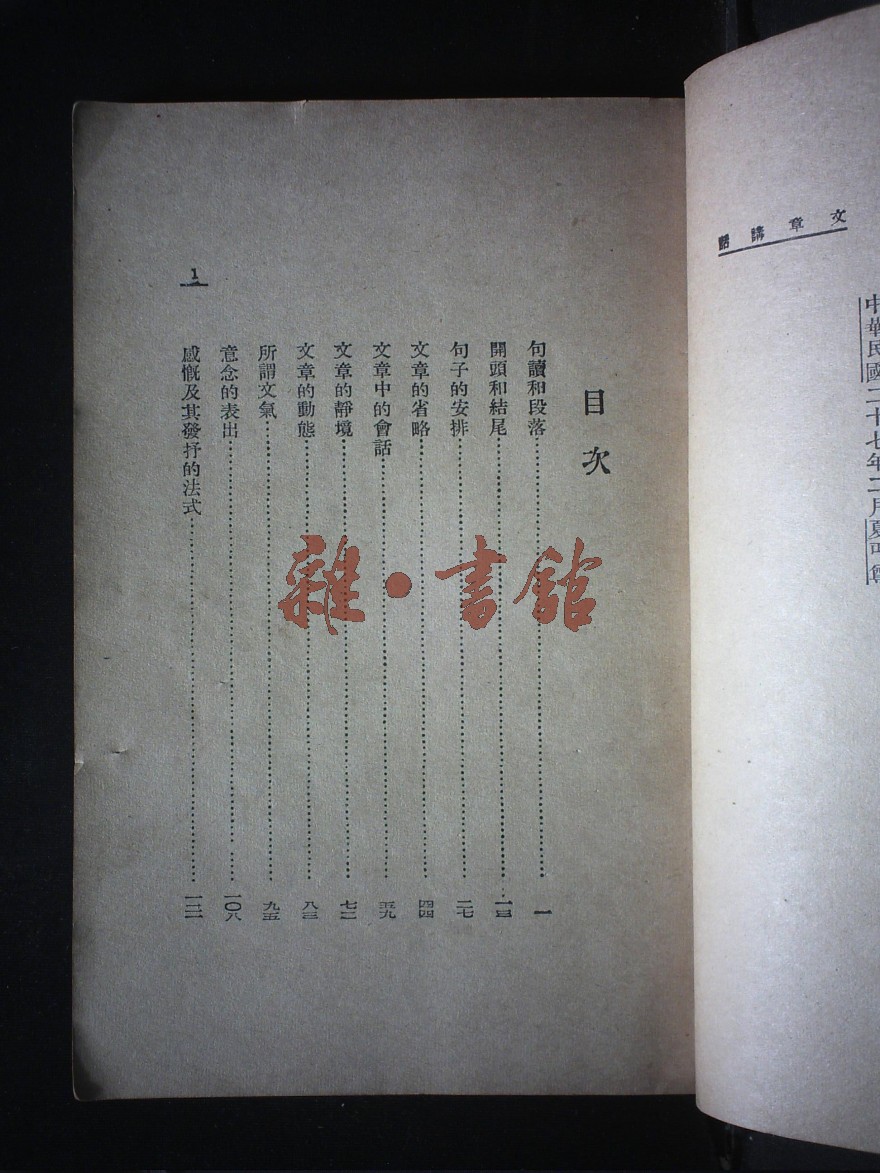 文章講話
中華民國二十七年二月夏丏尊
目次
句讀和段落……一
開頭和結尾……
句子的安排……二七
文章的省略……四四
文章中的會話……五九
文章的靜境……七二
文章的動態……八三
所謂文氣……九五
意念的表出……一〇八
感慨及其發抒的法式……
1
雜·書館